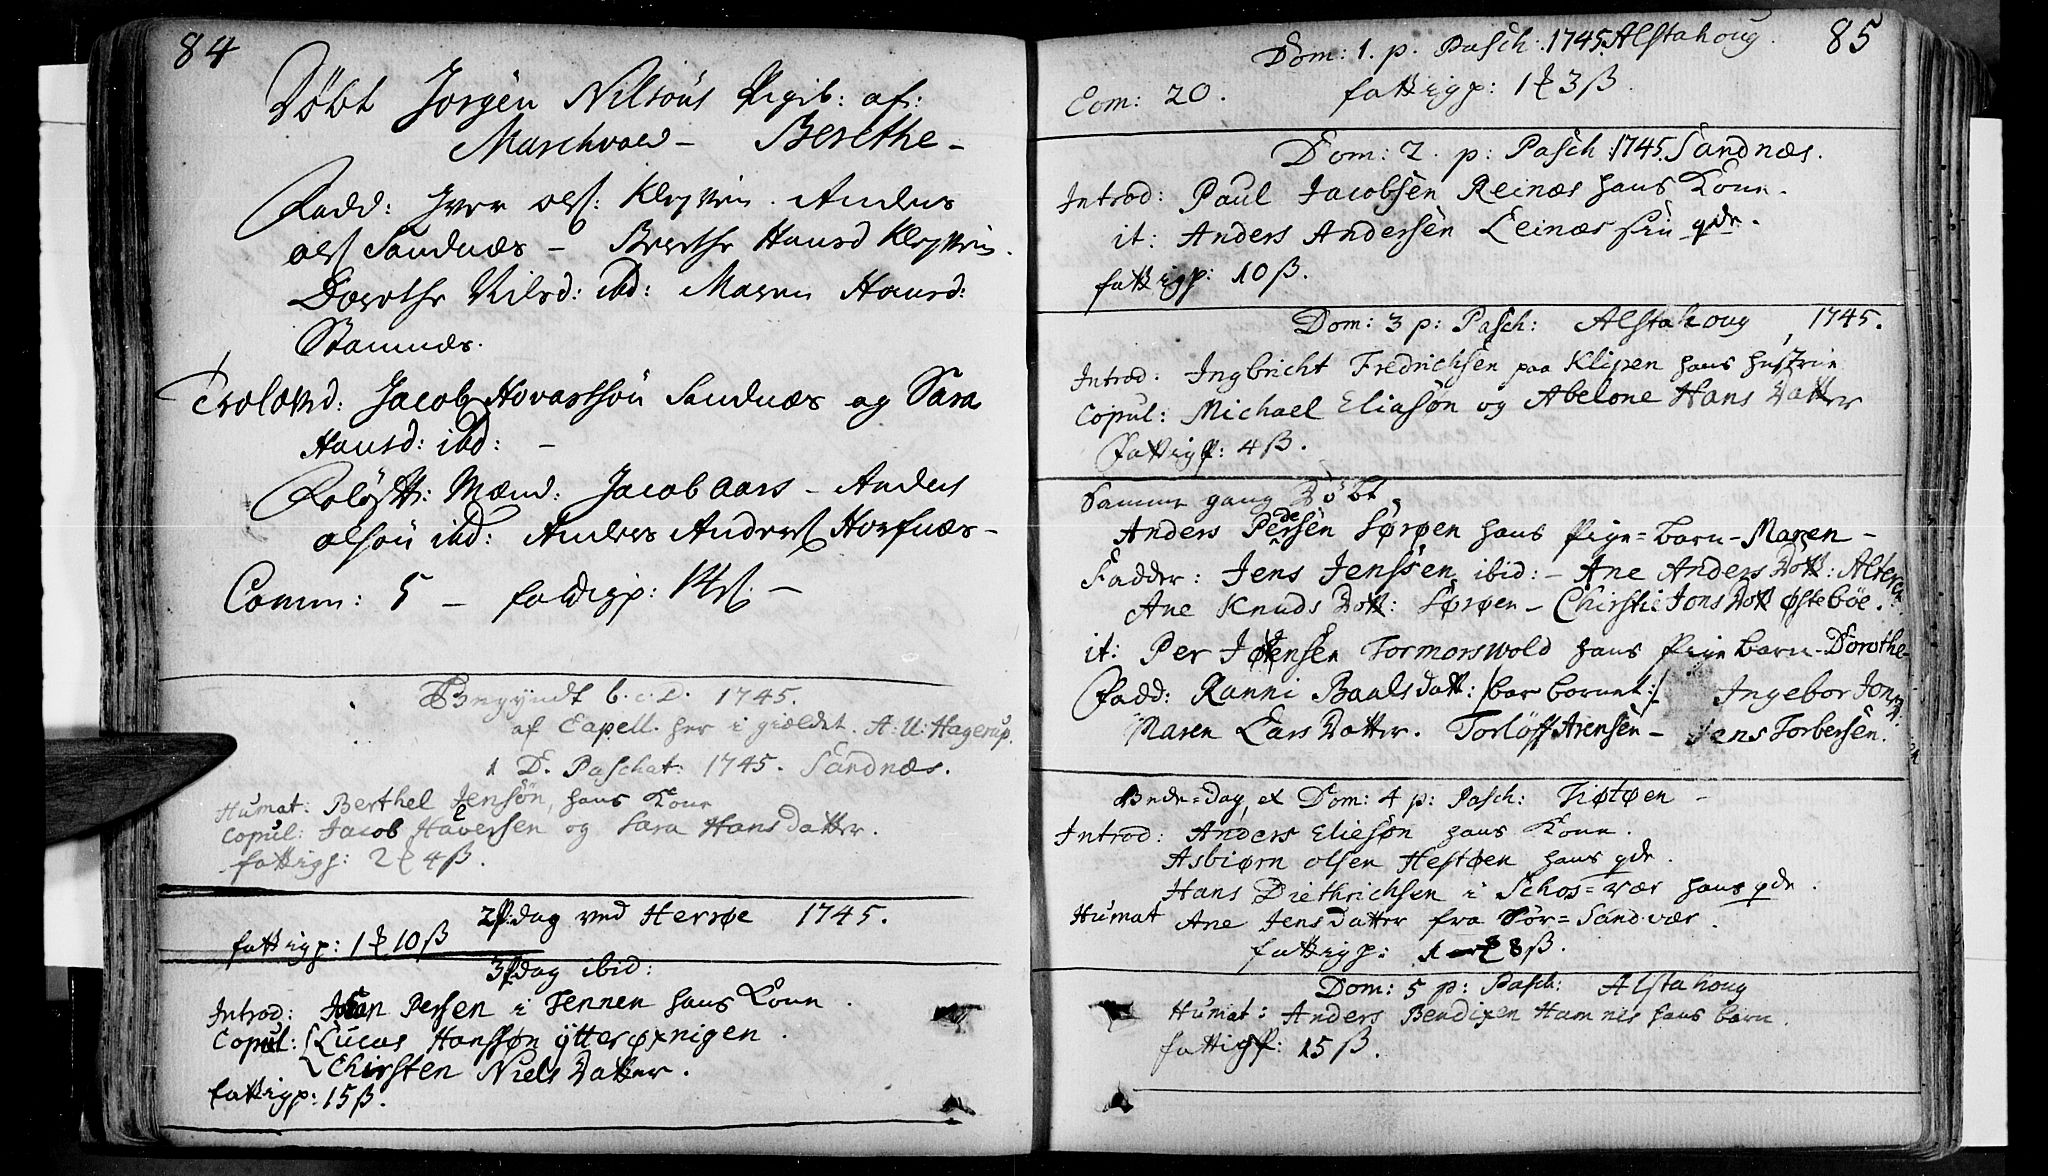 84
Döbt Jorgen Nilsöns Pigib: af:
Marchvold – Berethe –
Fadd: Iver ols: Kleyven. Anders
ols Sandnæs – Berethe Hansd Kleyven.
Dorothe Nilsd: ibd: Maren Hansd:
Stamnæs.
Trolovd: Jacob Hovartsön Sandnæs og Sara
Hansd: ibd: –
Forlöfts: Mænd: Jacob Aars – Anders
olsön ibd: Anders Anders Horfnæs –
Comm: 5 – fattigp:
Begyndt 6. c. D. 1745.
af Capell. her i gieldet. A: U: Hagerup.
1 D. Paschat: 1745. Sandnæs.
Humat: Berthel Jensön, hans Kone
Copul: Jacob Haversen og Sara Hans datter.
fattigp: 2 ₰ 4 ß.
2 P: dag ved Herrøe 1745.
fattigp: 1 ₰ 10 ß
3 P dag ibid:
Introd: Joen Persen i Tennen hans Kone.
Copul: Lucas Hanssøn ytterøxnigen.
Chirsten Niels Datter.
fattigp: 15 ß.
85
Dom: 1. p. Pasch: 1745. Alstahoug.
Com: 20. fattigp: 1 ₰ 3 ß.
Dom: 2. p: Pasch: 1745. Sandnæs.
Introd: Paul Jacobsen Reinæs hans Kone.
it: Anders Andersen Leinæs sin qde.
fattigp: 10 ß.
Dom: 3 p: Pasch: Alstahoug, 1745.
Introd: Ingbricht Fredrichsen paa Klipen hans hustrue
Copul: Michael Eliasøn og Abelone Hans Datter
Fattigp: 4 ß.
Samme gang Döbt
Anders Pedersen Sørøen hans Pige=barn – Maren –
Fadder: Jens Jenssen ibid: – Ane Anders Datt: Alteren:
Ane Knuds Datt: Sørøen – Chirstie Jons Datt østebøe.
it: Per Jensen Tormorswold hans Pige barn – Dorothe –
Fadd: Ranni Baals datt: /:bar barnet:/ Ingebor Jons D.
Maren Lars Datter. Torlöff Arensen – Jens Torbersen.
Bede=dag, et Dom: 4 p: Pasch: Tiøtøen –
Introd: Anders Eliesøn hans Kone.
Asbiørn olsen Hestøen hans qde.
Hans Diethrichsen i Schos=vær hans qde.
Humat Ane Jens datter fra Sör=Sandvær.
fattigp: 1 ₰ 8 ß.
Dom: 5 p: Pasch: Alstahoug
Humat: Anders Bendixen Hamnes hans barn.
fattigp: 15 ß.